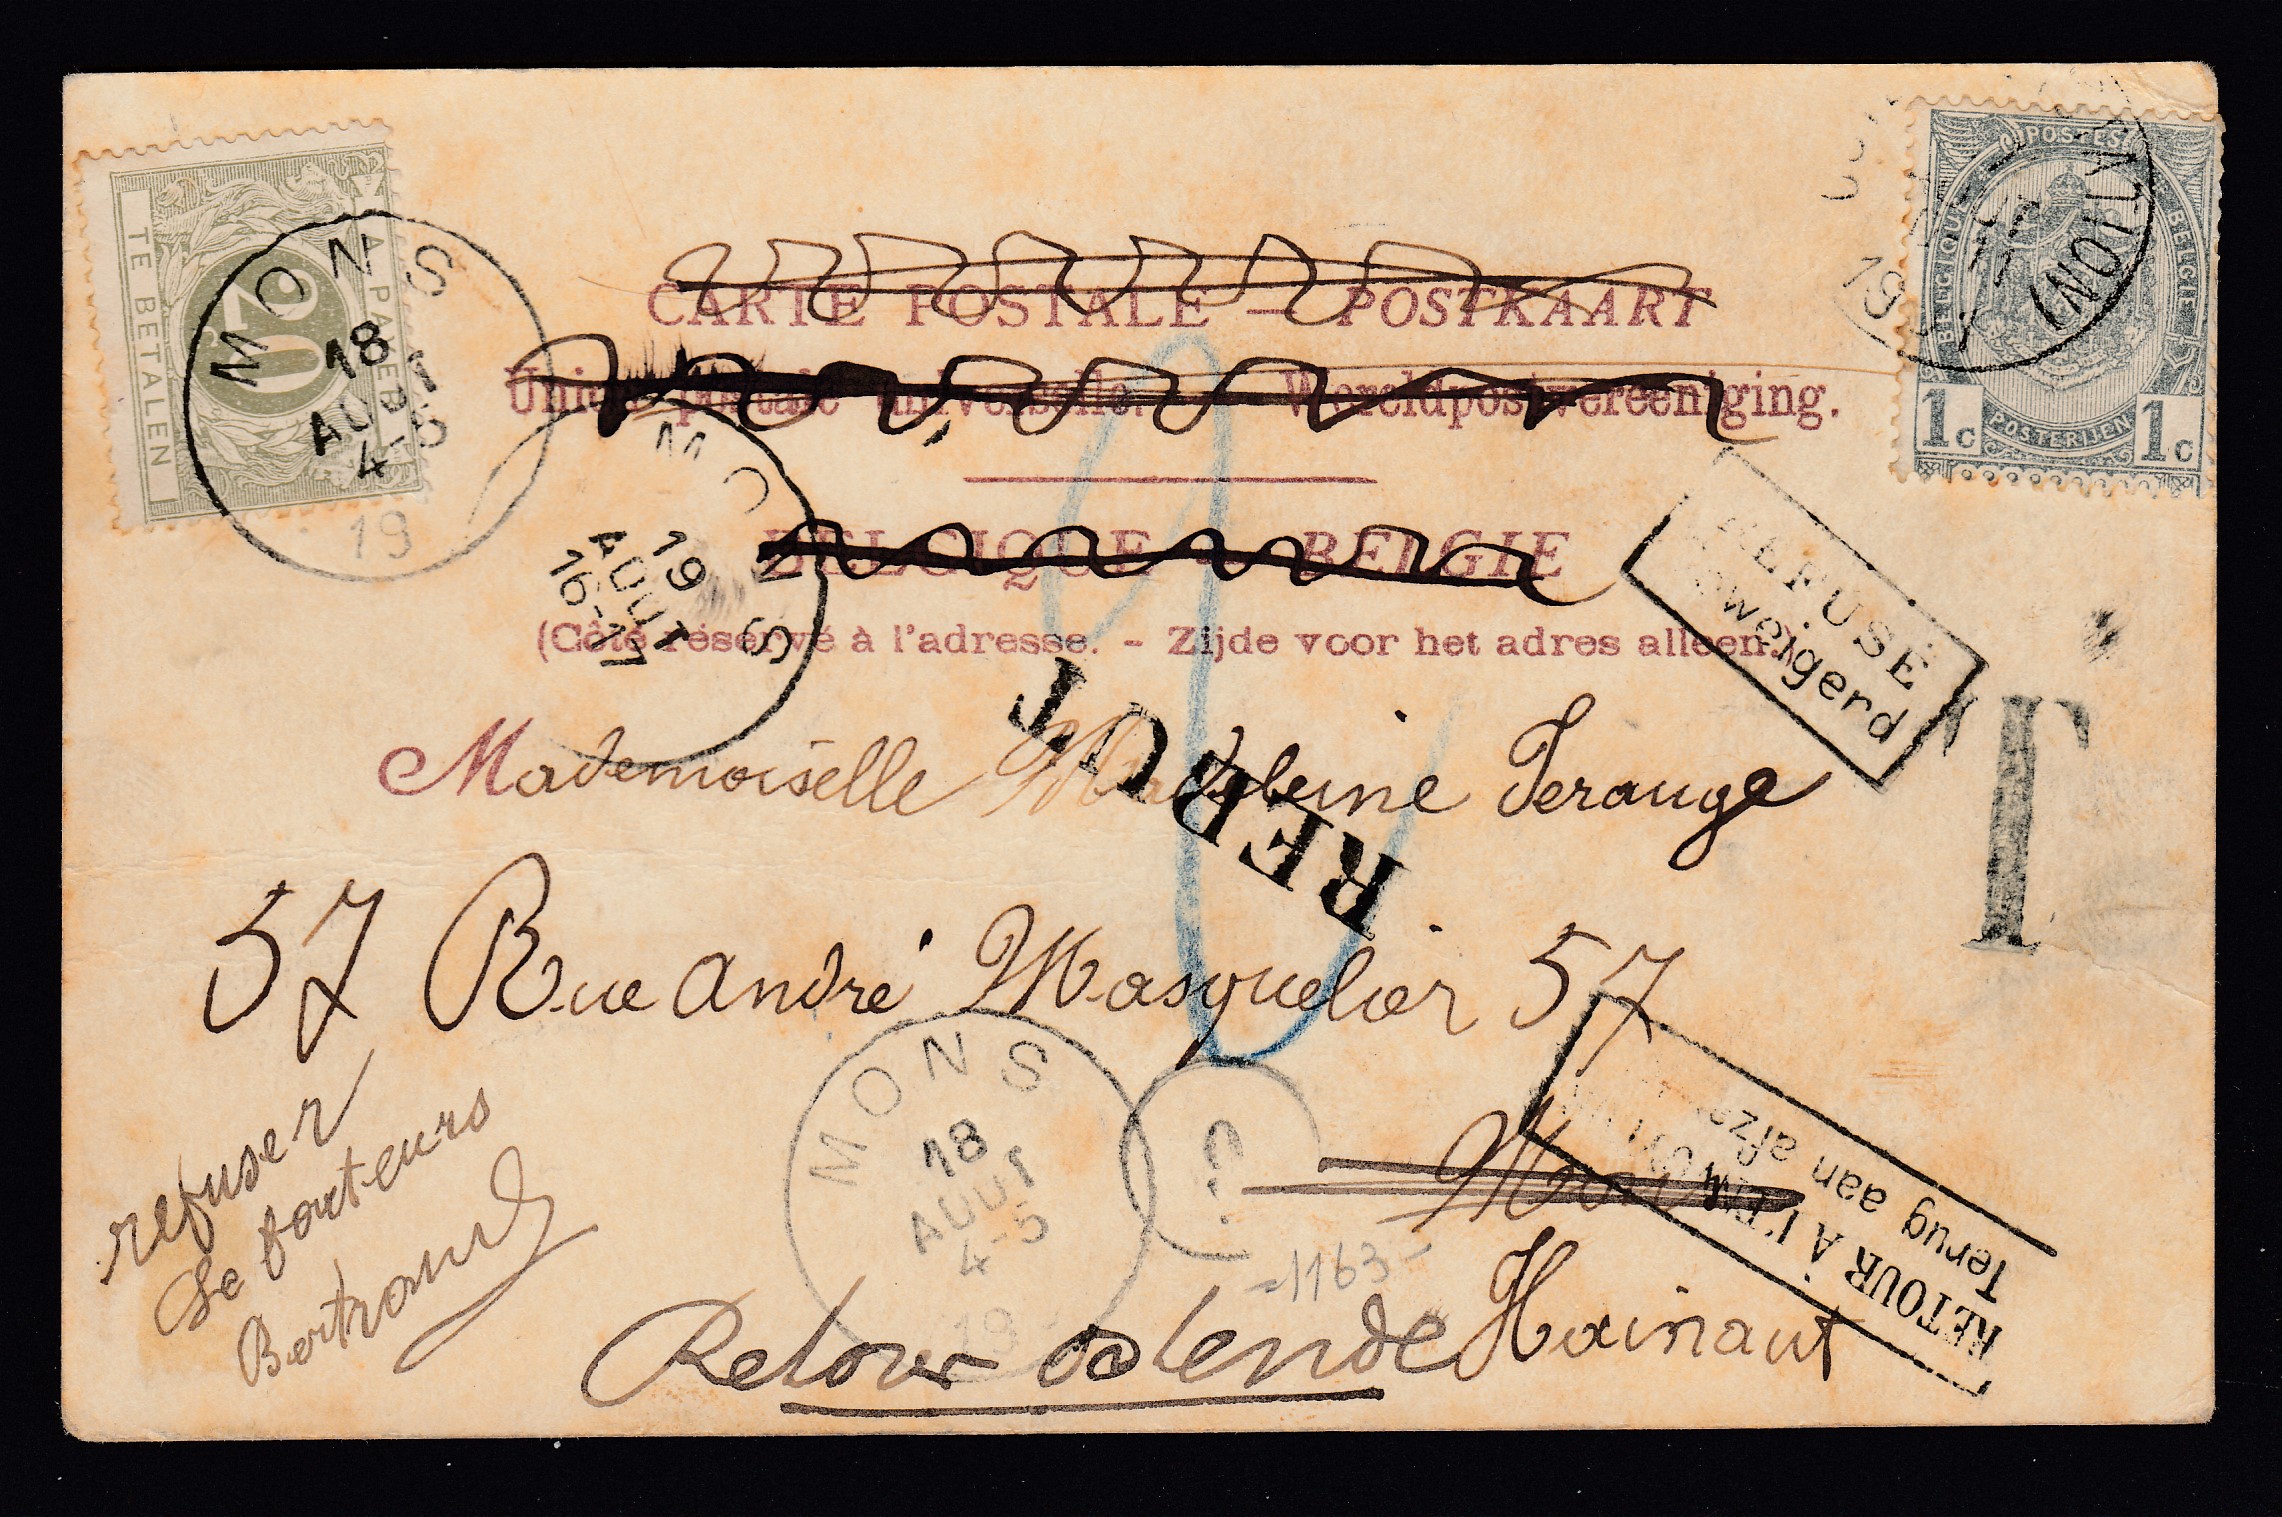 A PAYER
TE BETALEN
20
MONS
18
AOUT
4-5
19
POSTES
BELGIQUE
BELGIË
1c
POSTERIJEN
1c
(STATION)
19
CARTE POSTALE — POSTKAART
Union postale universelle. — Wereldpostvereeniging.
BELGIQUE - BELGIE
(Côté réservé à l'adresse. - Zijde voor het adres alleen.)
MONS
19
AOUT
16-17
REFUSÉ
Geweigerd
T
REBUT
Mademoiselle Madeleine Terauge
57 Rue André Masquelier 57
Mons
Hainaut
refuser
Le facteurs
Bertrand
MONS
18
AOUT
4-5
19
?
-1163-
RETOUR À L'EN
Terug aan afze
Retour Ostende